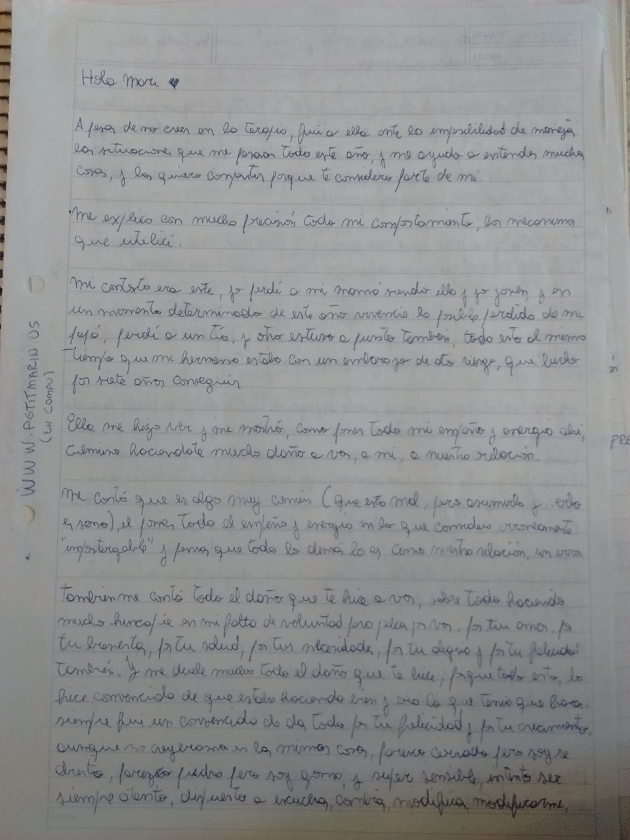 Hola Mari ♥
A pesar de no creer en la terapia, fui a ella ante la imposibilidad de manejar
las situaciones que me pasaron todo este año, y me ayudo a entender muchas
cosas, y las quiero compartir porque te considero parte de mi.
Me explico con mucha precisión todo mi comportamiento, los mecanismos
que utilicé.
Mi contexto era este, yo perdí a mi mamá siendo ella y yo joven, y en
un momento determinado de este año vivencie la posible perdida de mi
papá, perdí a un tío, y otro estuvo a punto tambien, todo esto al mismo
tiempo que mi hermana estaba con un embarazo de alto riesgo, que lucho
por siete años conseguir
Ella me hizo ver y me mostró, como poner todo mi empeño y energia ahi,
termino haciendote mucho daño a vos, a mi, a nuestra relación.
Me contó que es algo muy común (que esta mal, pero asumirlo y
es sano) el poner todo el empeño y energia en lo que considero erroneamente
"impostergable" y pensar que todo lo demas lo es como nuestra relación, un error
Tambien me contó todo el daño que te hice a vos, sobre todo haciendo
mucho hincapie en mi falta de voluntad para pelear por vos, por tu amor, por
tu , por tu salud, por tus necesidades, por tu y por tu felicidad
tambien. Y me duele mucho todo el daño que te hice, porque todo esto, lo
hice convencido de que estaba haciendo bien y era lo que tenia que hacer.
siempre fui un convencido de dar todo por tu felicidad y por tu crecimiento,
aunque no creyeramos en las mismas cosas, parezco cerrado pero soy
, parezco piedra pero soy goma, y super sensible, intento ser
siempre atento, dispuesto a escuchar, cambiar, modificar, modificarme,
WWW.PETITMARIN US
(EN COMPU)
PRE